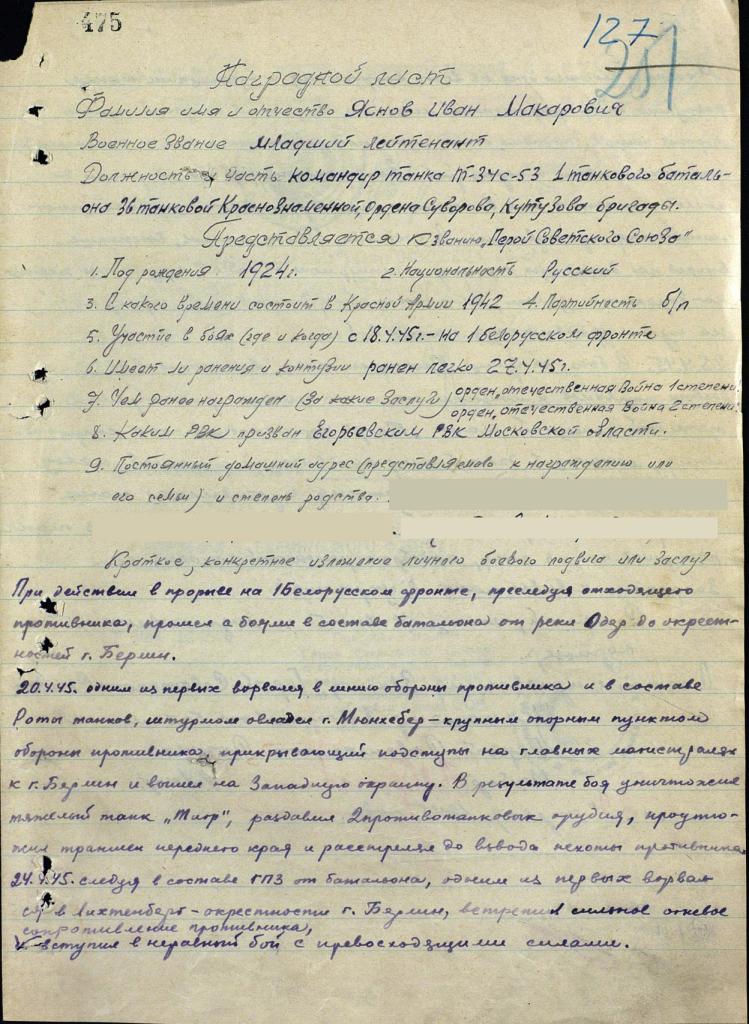 475
127
201
Наградной лист
Фамилия имя и отчество Яснов Иван Макарович
Военное звание младший лейтенант
Должность и часть командир танка Т-34 с-53 1 танкового баталь-
она 36 танковой Краснознаменной, Ордена Суворова, Кутузова бригады.
Представляется к званию „Герой Советского Союза"
1. Год рождения 1924 г. 2. Национальность Русский
3. С какого времени состоит в Красной Армии 1942 4. Партийность б/п
5. Участие в боях (где и когда) с 18.4.45г. - на 1 белорусском фронте
6. Имеет ли ранения и контузии ранен легко 27.4.45г.
7. Чем ранее награжден (за какие заслуги) орден „отечественная Война 1 степени"
орден „отечественная Война 2 степени"
8. Каким РВК призван Егорьевским РВК Московской области.
9. Постоянный домашний адрес (представляемого к награждению или
его семьи) и степень родства.
Краткое, конкретное изложение личного боевого подвига или заслуг
При действии в прорыве на 1 Белорусском фронте, преследуя отходящего
противника, прошел с боями в составе батальона от реки Одер до окрест-
ностей г. Берлин.
20.4.45. одним из первых ворвался в линию обороны противника и в составе
Роты танков, штурмом овладел г. Мюнхеберг - крупным опорным пунктом
обороны противника, прикрывающий подступы на главных магистралях
к г. Берлин и вышел на Западную окраину. В результате боя уничтожил
тяжелый танк „Тигр", раздавил 2 противотанковых орудия, проутю-
жил траншеи переднего края и расстрелял до взвода пехоты противника
24.4.45. следуя в составе ГПЗ от батальона, одним из первых ворвал
ся в Лихтенберг - окрестности г. Берлин, встретил сильное огневое
сопротивление противника,
вступил в неравный бой с превосходящими силами.